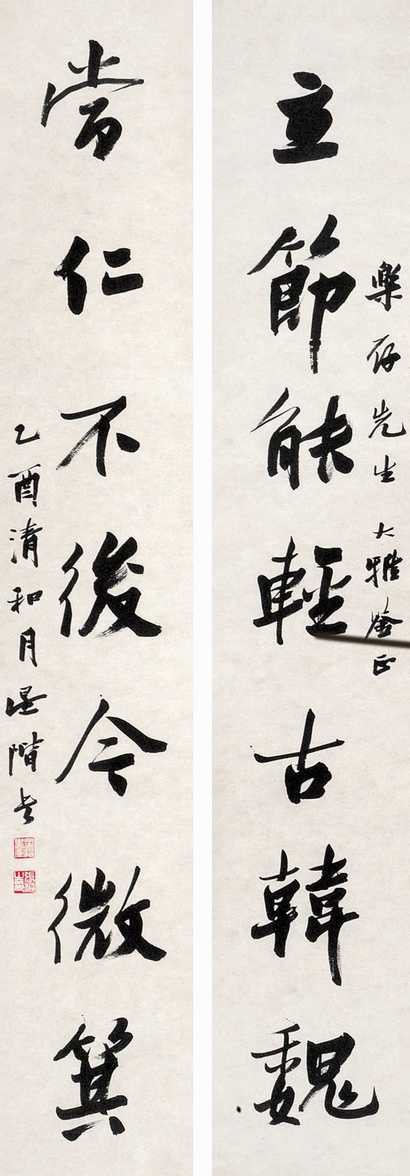 樂存先生大雅鉴正
立節能輕古韓魏
當仁不後今微箕
乙酉清和月墨階书